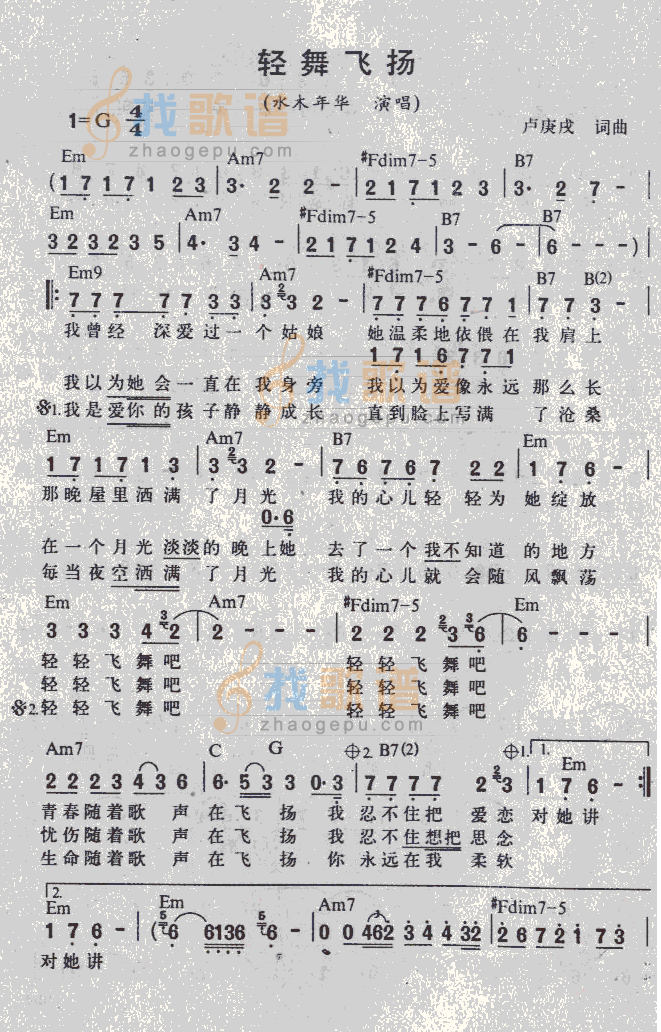 轻舞飞扬
(水木年华 演唱)
1=G 4/4
找歌谱
zhaogepu.com
卢庚戌 词曲
Em Am7 #Fdim7-5 B7
(1 7 1 7 1 2 3 | 3· 2 2 - | 2 1 7 1 2 3 | 3· 2 7 - |
Em Am7 #Fdim7-5 B7 B7
3 2 3 2 3 5 | 4· 3 4 - | 2 1 7 1 2 4 | 3 - 6 - | 6 - - -) |
Em9 Am7 #Fdim7-5 B7 B(2)
7 7 7 7 7 3 3 | 3 2 3 2 - | 7 7 7 6 7 7 1 | 7 7 3 - |
我曾经 深爱过一个姑娘 她温柔地依偎在我肩上
1 7 1 6 7 7 1
我以为她会一直在我身旁 我以为爱像永远那么长
找歌谱
zhaogepu.com
𝄋1.我是爱你的孩子静静成长 直到脸上写满 了沧桑
Em Am7 B7 Em
1 7 1 7 1 3 | 3 2 3 2 - | 7 6 7 6 7 2 2 | 1 7 6 - |
那晚屋里洒满 了月光 我的心儿轻 轻为 她绽放
0·6
在一个月光淡淡的晚上她 去了一个我不知道 的地方
每当夜空洒满 了月光 我的心儿就 会随 风飘荡
Em Am7 #Fdim7-5 Em
3 3 3 4 3 2 | 2 - - - | 2 2 2 2 3 3 6 | 6 - - - |
轻轻飞舞吧 轻轻飞舞吧
轻轻飞舞吧 轻轻飞舞吧
𝄋2.轻轻飞舞吧 轻轻飞舞吧
找歌谱
zhaogepu.com
Am7 C G 𝄌2. B7(2) 𝄌1. 1. Em
2 2 2 3 4 3 6 | 6· 5 3 3 0·3 | 7 7 7 7 2 2 3 | 1 7 6 - :|
青春随着歌 声在飞 扬 我忍不住把 爱恋 对她讲
忧伤随着歌 声在飞 扬 我忍不住想把思念
生命随着歌 声在飞 扬 你永远在我 柔软
2.
Em Em Am7 #Fdim7-5
1 7 6 - | (5 6 6136 5 6 - | 0 0 462 3 4 4 32 | 2 6 7 2 1 7 3 |
对她讲